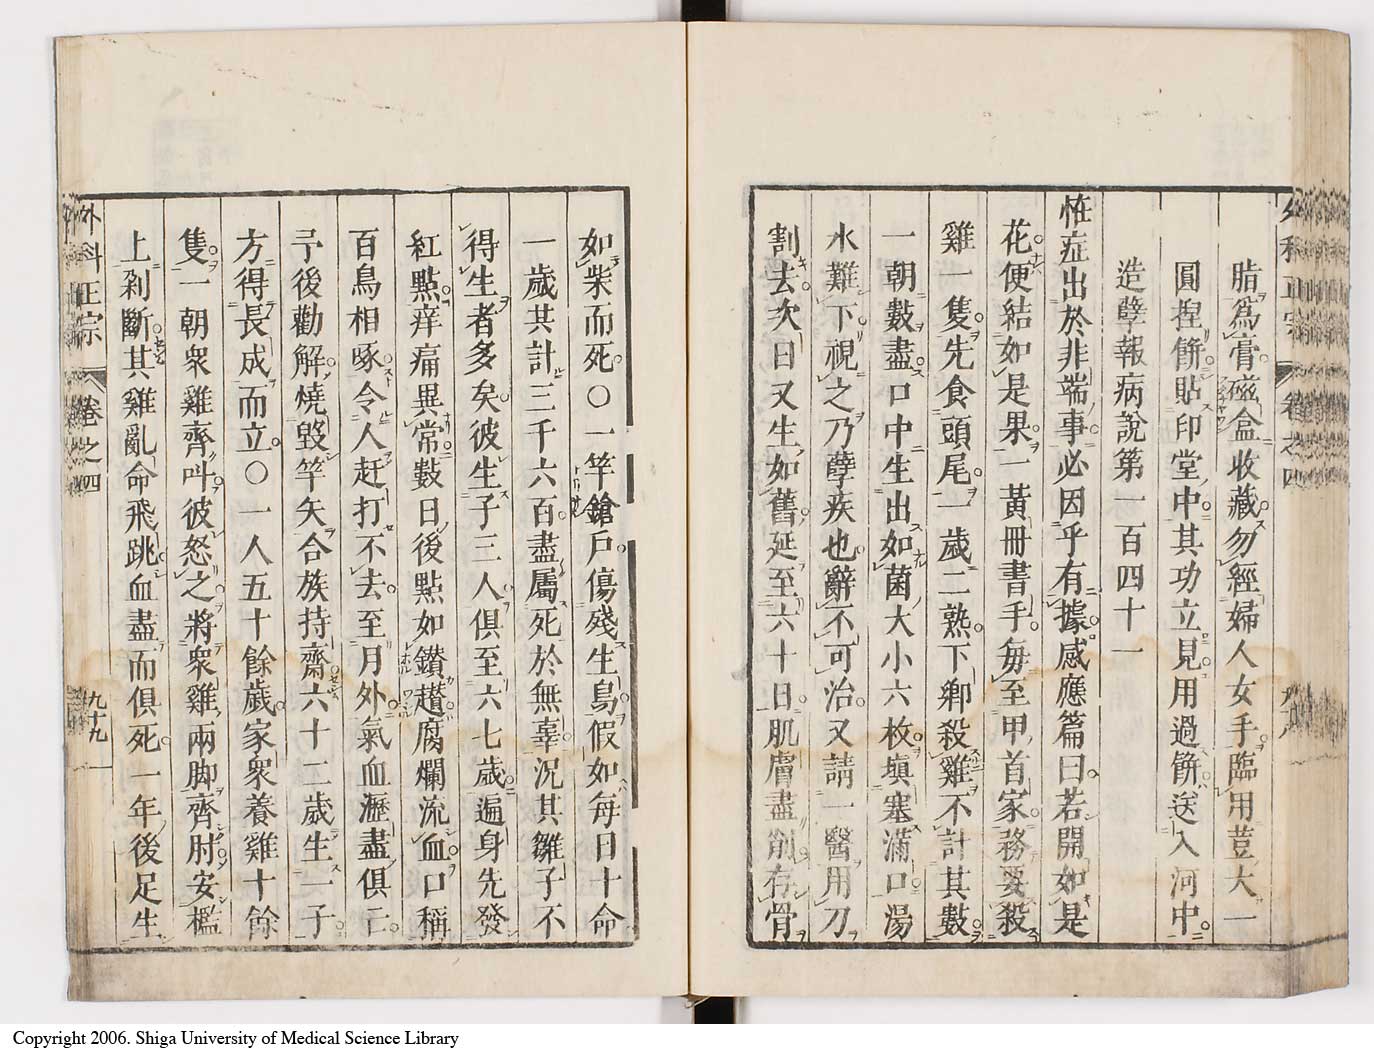 脂爲膏磁盒收藏勿經婦人女手臨用荳大一
圓揑餅貼印堂中其功立見用過餅送入河中
造孽報病說第一百四十一
恠症出於非端事必因乎有據感應篇曰若開如是
花便結如是果一黃冊書手每至甲首家務要殺
雞一隻先食頭尾一歲二熟下鄕殺雞不計其數
一朝數盡口中生出如菌大小六枚塡塞滿口湯
水難下視之乃孽疾也辭不可治又請一醫用刀
割去次日又生如舊延至六十日肌膚盡削存骨
如柴而死〇一竿鎗戶傷殘生鳥假如每日十命
一歲其計三千六百盡屬死於無辜況其雛子不
得生者多矣彼生子三人俱至六七歲遍身先發
紅點痒痛異常數日後點如鑚𧽼腐爛流血口稱
百鳥相啄令人赶打不去至月外氣血瀝盡俱亡
予後勸解燒毀竿矢合族持齋六十二歲生一子
方得長成而立〇一人五十餘歲家衆養雞十餘
隻一朝衆雞齊叫彼怒之將衆雞兩脚齊肘安檻
上剁斷其雞亂命飛跳血盡而俱死一年後足生
外科正宗 卷之四 九十九
Copyright 2006. Shiga University of Medical Science Library